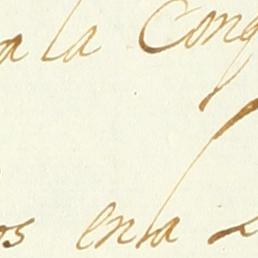 a la Cong
os en la